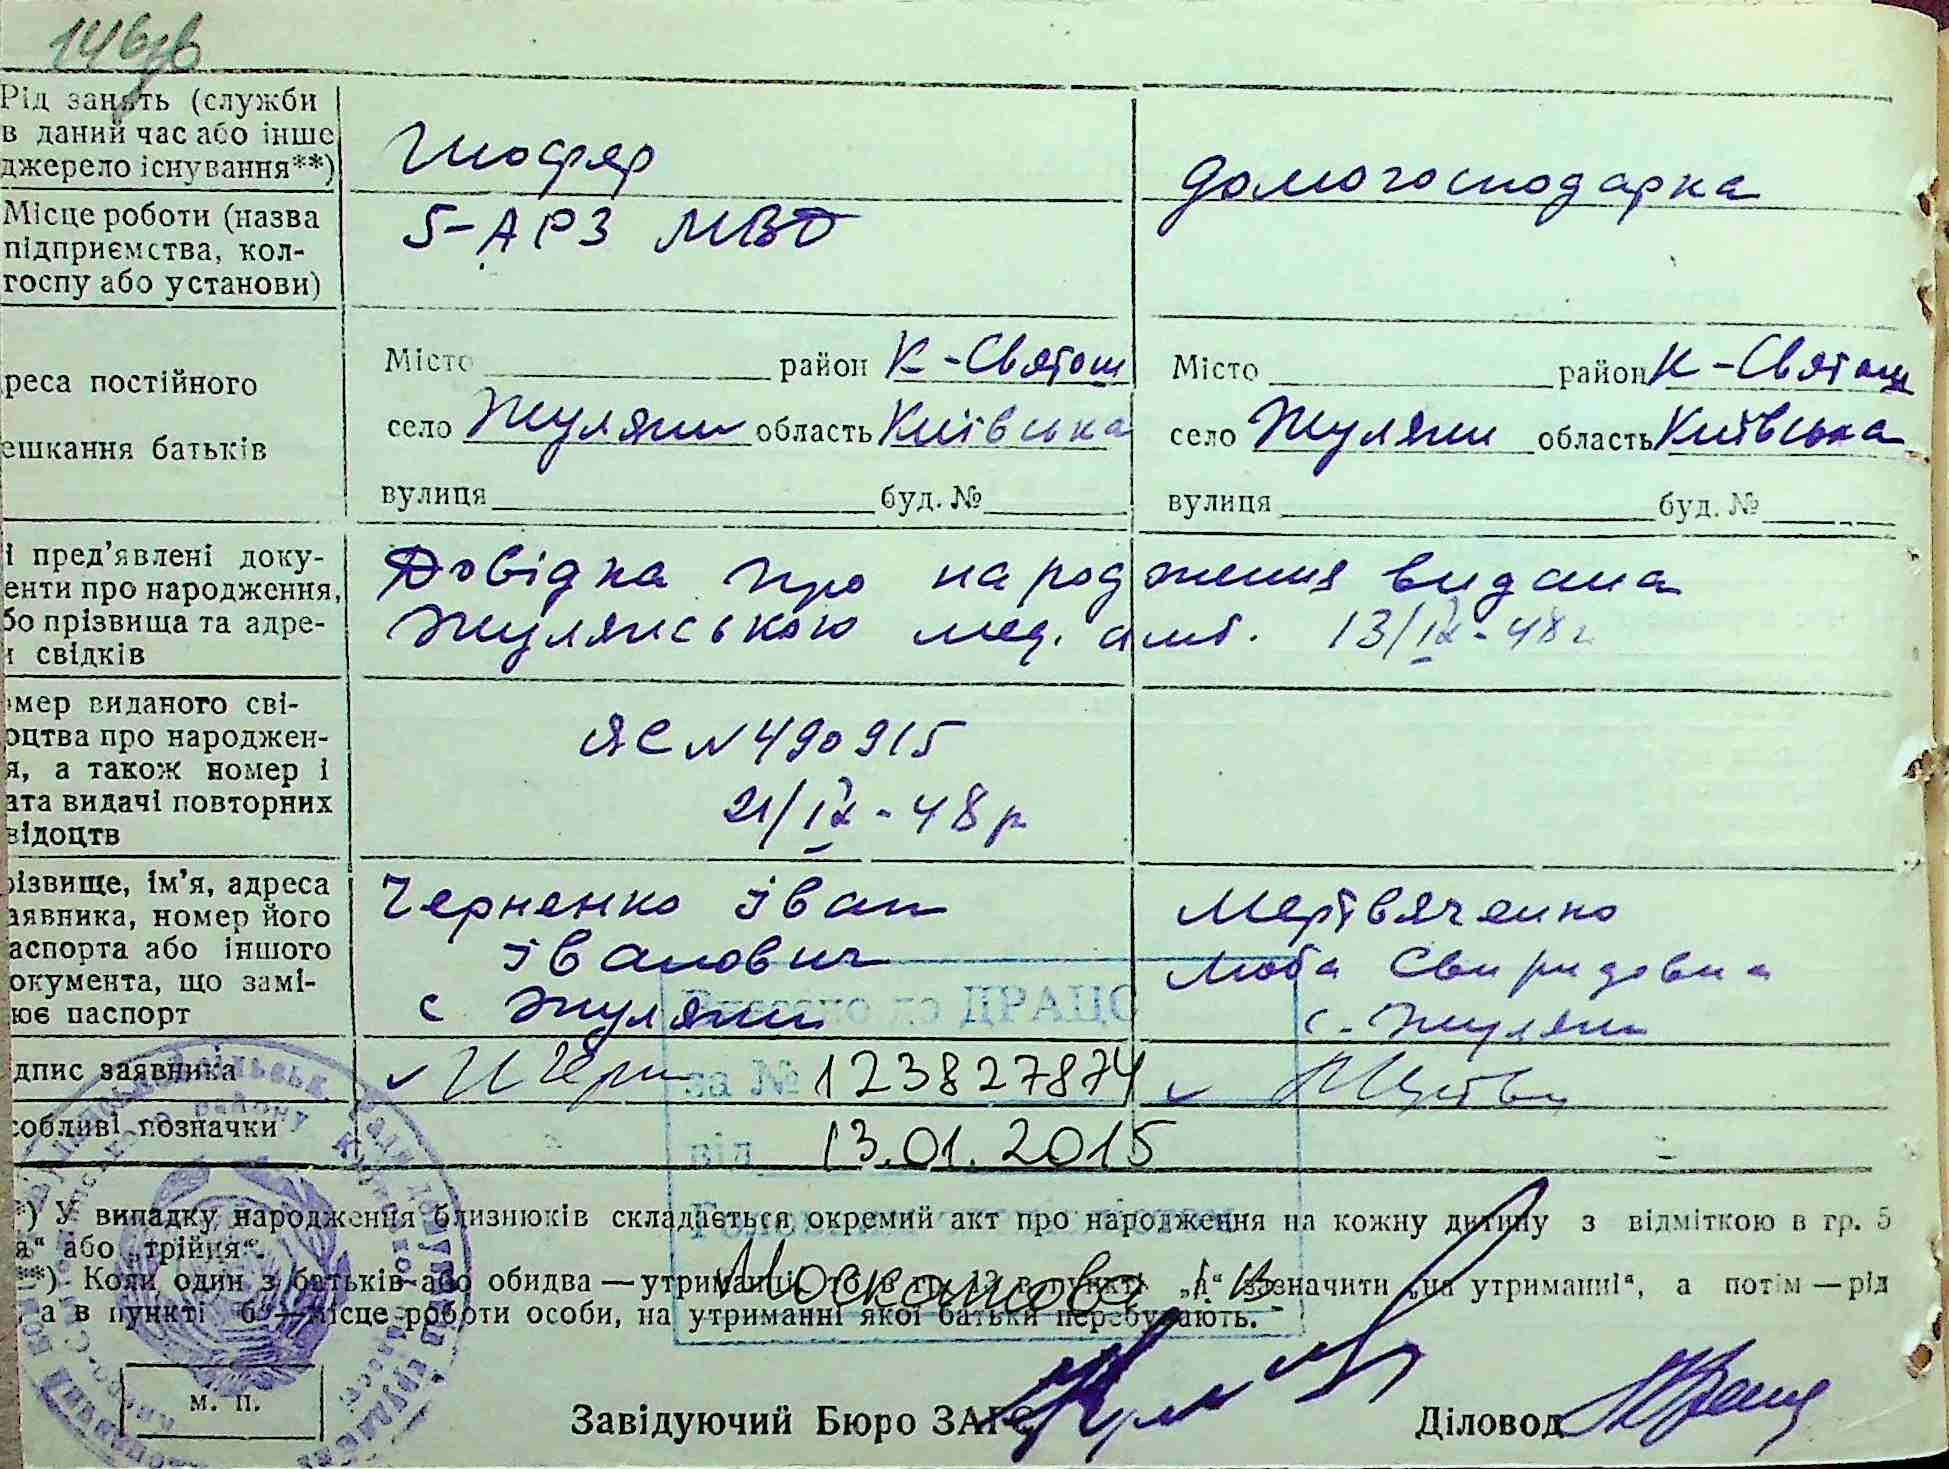 Рід занять (служби
в даний час або інше
джерело існування**)
Шофер
домогосподарка
Місце роботи (назва
підприємства, кол-
госпу або установи)
5-АРЗ МВД
реса постійного
ешкання батьків
Місто район К-Святош
село Жуляни область Київська
вулиця буд. №
Місто район К-Святош
село Жуляни область Київська
вулиця буд. №
і пред'явлені доку-
енти про народження,
бо прізвища та адре-
и свідків
Довідка про народження видана
Жулянською мед. амб. 13/IX-48г
омер виданого сві-
оцтва про народжен-
я, а також номер і
ата видачі повторних
відоцтв
ЯС №490915
21/IX-48р
різвище, ім'я, адреса
аявника, номер його
аспорта або іншого
окумента, що замі-
ює паспорт
Черненко Іван
Іванович
с Жуляни
Мертвяченко
Люба Свиридовна
с. Жуляни
ідпис заявника
И Черн
собливі позначки
Внесено до ДРАЦС
за № 123827874
від 13.01.2015
*) У випадку народження близнюків складається окремий акт про народження на кожну дитину з відміткою в гр. 5
а“ або „трійця“.
**) Коли один з батьків або обидва — утриманці, то в гр. 12 в пункті „а“ зазначити „на утриманні“, а потім — рід
а в пункті б“ — місце роботи особи, на утриманні якої батьки перебувають.
м. п.
Завідуючий Бюро ЗАГС
Діловод